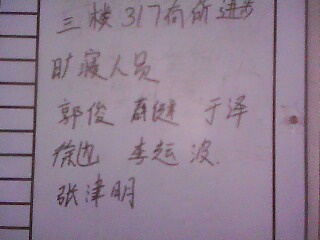 三楼317有所进步
旷寝人员
郭俊 薛健 于泽
徐迪 李运波
张津明